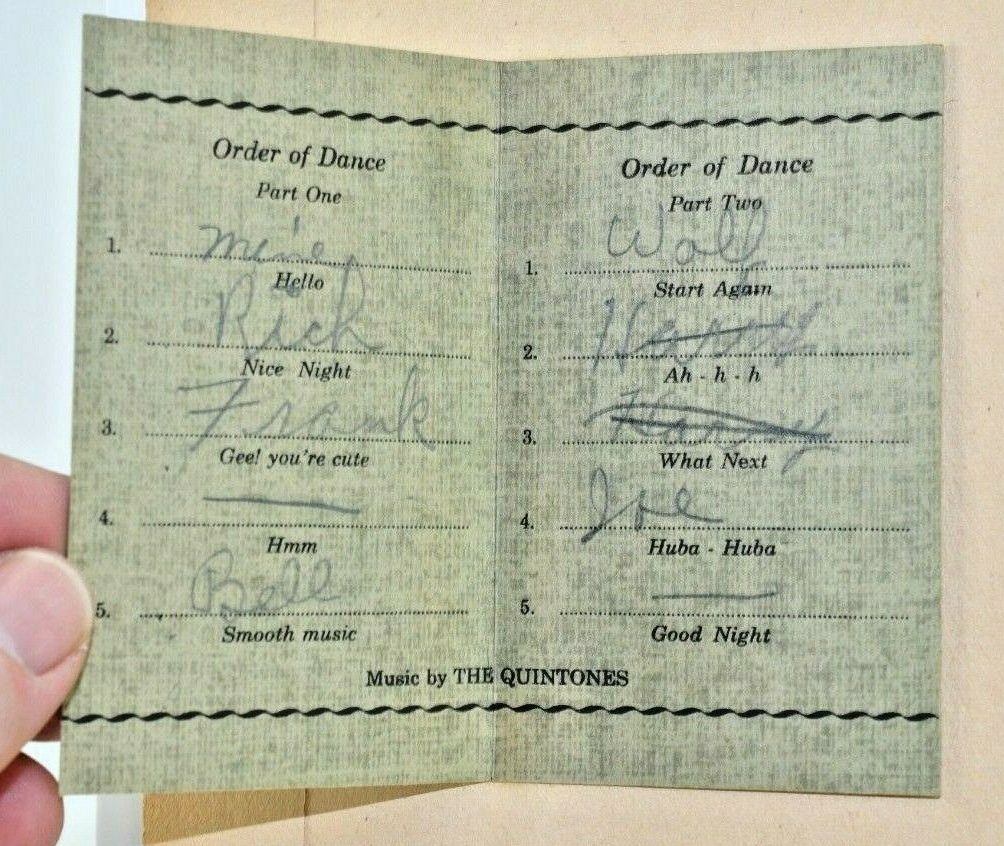 Order of Dance
Part One
1. Mine
Hello
2. Rich
Nice Night
3. Frank
Gee! you're cute
4.
Hmm
5. Bell
Smooth music
Order of Dance
Part Two
1. Wall
Start Again
2.
Ah - h - h
3. Harvey
What Next
4. Joe
Huba - Huba
5.
Good Night
Music by THE QUINTONES